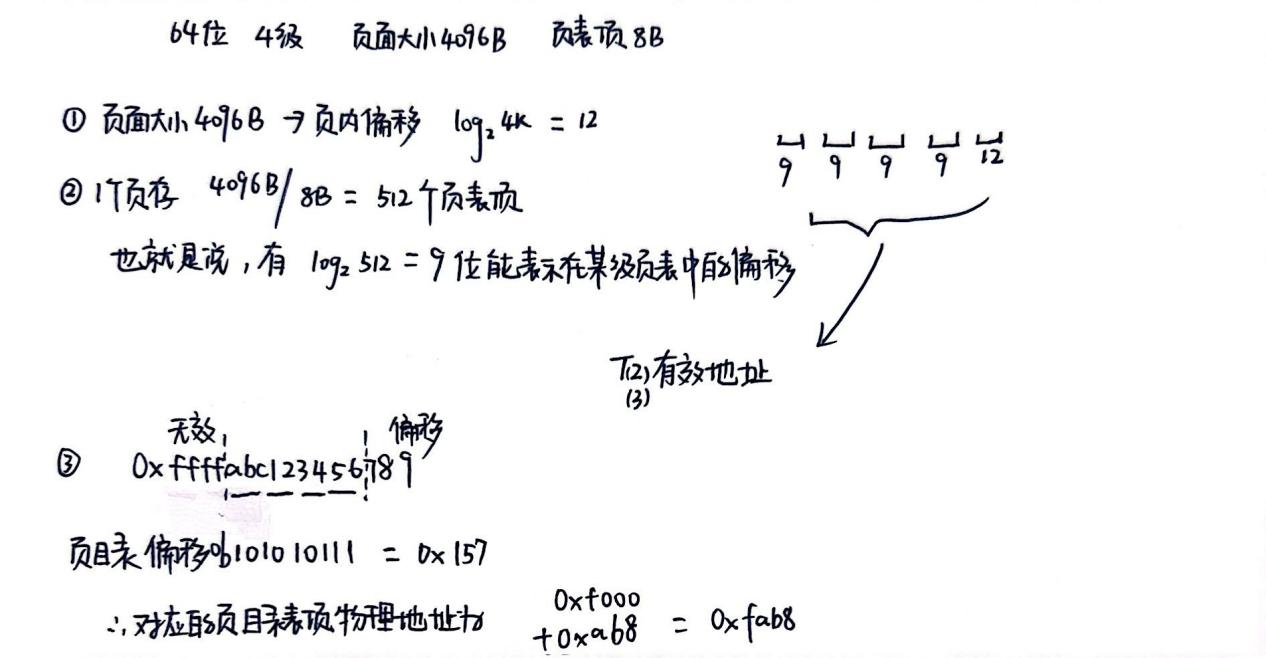 64位 4级 页面大小4096B 页表项8B
① 页面大小4096B → 页内偏移 log₂4K = 12
② 1个页存 4096B/8B = 512个页表项
也就是说,有 log₂512 = 9位能表示在某级页表中的偏移
9 9 9 9 12
T(2)有效地址
(3)
无效 偏移
③ 0xffffabc123456789
页目录偏移0b101010111 = 0x157
∴对应的页目录表项物理地址为 0xf000
+0xab8 = 0xfab8